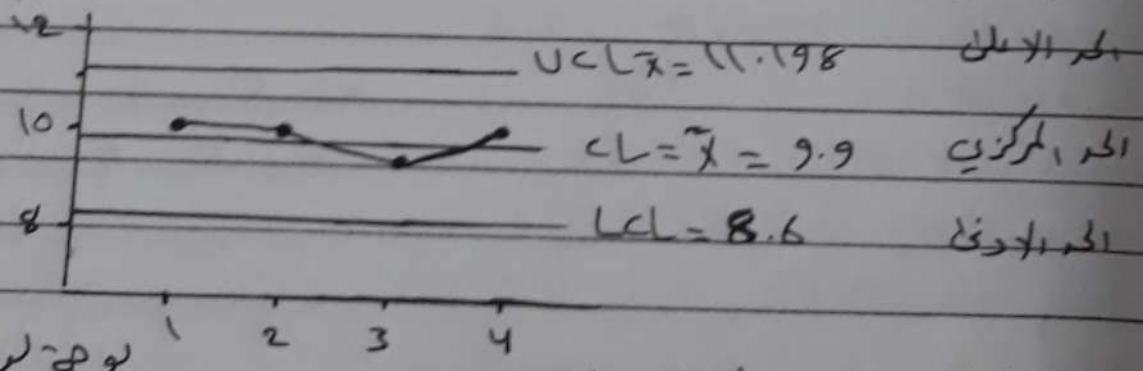 12
UCL x̄ = 11.198 الحد الاعلى
10
CL = x̄ = 9.9 الحد المركزي
8
LCL = 8.6 الحد الادنى
1 2 3 4